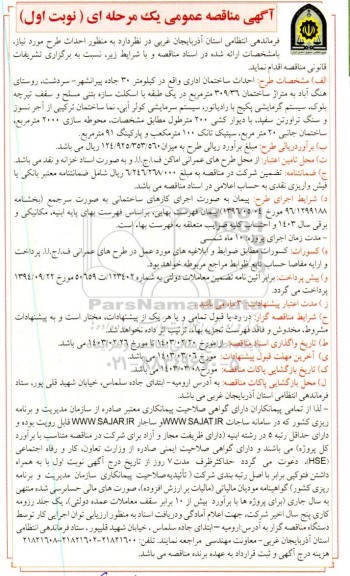 آگهی مناقصه عمومی یک مرحله ای ( نوبت اول)
فرماندهی انتظامی استان آذربایجان غربی در نظر دارد به منظور احداث طرح مورد نیاز،
بامشخصات ارائه شده در اسناد مناقصه و با شرایط زیر، نسبت به برگزاری تشریفات
قانونی مناقصه اقدام نماید.
الف) مشخصات طرح: احداث ساختمان اداری واقع در کیلومتر ۳۰ جاده پیرانشهر– سردشت، روستای
هنگ آباد به متراژ ساختمان ۳۰۹/۳۶ مترمربع در یک طبقه با اسکلت سازه بتنی مسلح و سقف تیرچه
بلوک، سیستم گرمایشی پکیج با رادیاتور، سیستم سرمایشی کولر آبی، نما ساختمان ترکیبی از آجر نسوز
و سنگ تراورتن سفید، با دیوار کشی ۲۰۰ مترطول مطابق مشخصات، محوطه سازی ۲۰۰۰ مترمربع،
ساختمان جانبی ۲۰ متر مربع، سپتیک تانک ۱۰۰ مترمکعب و پارکینگ ۹۱ مترمربع.
ب) برآورد ریالی طرح: مبلغ برآورد ریالی طرح به میزان ۱۲۴/۹۲۵/۳۵۳/۵۶۰ ریال می باشد.
ت) محل تامین اعتبار: از محل طرح های عمرانی اماکن ف.ا.ج.ا.ا. و به صورت اسناد خزانه و نقد می باشد.
ج) ضمانتنامه: تضمین شرکت در مناقصه به مبلغ ۶/۲۴۶/۲۶۸/۰۰۰ ریال شامل ضمانتنامه معتبر بانکی یا
فیش واریزی نقدی به حساب اعلامی در اسناد مناقصه می باشد.
د) شرایط اجرای طرح: پیمان به صورت اجرای کارهای ساختمانی به صورت سرجمع (بخشنامه
۹۶/۱۲۹۹۱۸۸ مورخ ۱۳۹۶/۰۵/۰۴ پیمان فهرست بهایی، براساس فهرست بهای پایه ابنیه، مکانیکی و
برقی سال ۱۴۰۳ و احتساب کلیه ضرایب متعلقه به فهرست بها، است.
– مدت زمان اجرای پروژه ۱۰ ماه شمسی
ه) کسورات: کسورات مطابق ضوابط و ابلاغیه های مورد عمل در طرح های عمرانی ف.ا.ج.ا.ا. پرداخت
و ارایه مفاصا حساب تابع ظوابط مراجع مربوطه خواهد بود.
و) پیش پرداخت: برابر آئین نامه تضمین معاملات دولتی به شماره ۱۲۳۴۰۲/ت۵۰۶۵۹ مورخ ۱۳۹۴/۰۹/۲۲
پرداخت می گردد.
ز) مدت اعتبار پیشنهادات: ۳ ماه می باشد.
ح) شرایط مناقصه گزار: در رد یا قبول تمامی و یا هر یک از پیشنهادات، مختار است و به پیشنهادات
مشروط، مخدوش و فاقد فهرست تجزیه بهاء، ترتیب اثر داده نخواهد شد.
ط) تاریخ واگذاری اسناد مناقصه: از مورخ ۱۴۰۳/۰۲/۲۰ تا مورخ ۱۴۰۳/۰۲/۲۶ می باشد.
ی) آخرین مهلت قبول پیشنهادات: مورخ ۱۴۰۳/۰۳/۰۶ می باشد.
ک) تاریخ بازگشایی پاکات مناقصه: مورخ ۱۴۰۳/۰۳/۰۸ می باشد.
ل) محل بازگشایی پاکات مناقصه: به آدرس ارومیه– ابتدای جاده سلماس، خیابان شهید قلی پور، ستاد
فرماندهی انتظامی استان آذربایجان غربی می باشد.
– لذا از تمامی پیمانکاران دارای گواهی صلاحیت پیمانکاری معتبر صادره از سازمان مدیریت و برنامه
ریزی کشور که در سامانه ساجات WWW.SAJAT.IR و ساجار WWW.SAJAR.IR قابل رویت بوده و
دارای حداقل رتبه ۵ در رشته ابنیه (دارای ظرفیت مجاز و آزاد برای شرکت در مناقصه متناسب با برآورد
کل پروژه) می باشند و دارای گواهی صلاحیت ایمنی صادره از وزارت تعاون، کار و رفاه اجتماعی
(HSE)، دعوت می گردد حداکثرظرف مدت۷ روز از تاریخ درج آگهی نوبت اول با به همراه
داشتن فتوکپی برابر با اصل رتبه بندی شرکت ( تائیدیه صلاحیت پیمانکاری سازمان مدیریت و برنامه
ریزی کشور) گواهینامه مودیان مالیاتی (مالیات بر ارزش افزوده)، صورت های مالی حسابرسی شده منتهی
به سال جاری (برای پروژه ها با برآورد بیش از ۱۰ برابر سقف معاملات عمده دولتی)، یک جلد رزومه
کاری پنج سال اخیر شرکت، جهت اعلام آمادگی ودریافت اسناد به منظور ارزیابی توان اجرایی کار توسط
دستگاه مناقصه گزار به آدرس:ارومیه –ابتدای جاده سلماس ، خیابان شهید قلیپور ، ستاد فرماندهی انتظامی
استان آذربایجان غربی– معاونت مهندسی مراجعه نمایند. تلفن: ۲۱۸۲۱۶۰۰–۲۱۸۲۱۶۰۲–۲۱۸۲۱۶۰۸
هزینه درج آگهی و ثبت قرارداد به عهده برنده مناقصه می باشد.